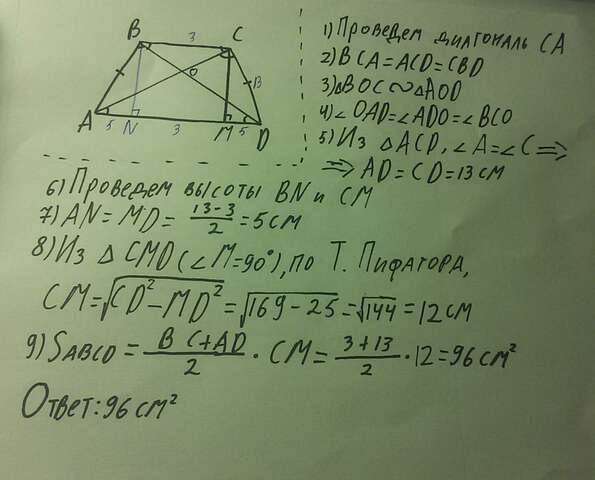 B 3 C
O 13
A 5 N 3 M 5 D
1) Проведем диагональ CA
2) BCA = ACD = CBD
3) ΔBOC ∾ ΔAOD
4) ∠OAD = ∠ADO = ∠BCO
5) Из ΔACD, ∠A = ∠C ⇒
⇒ AD = CD = 13 см
6) Проведем высоты BN и CM
7) AN = MD = \frac{13-3}{2} = 5 см
8) Из Δ CMD (∠M = 90°), по Т. Пифагора,
CM = √(CD² - MD²) = √(169 - 25) = √144 = 12 см
9) S_{ABCD} = \frac{BC + AD}{2} · CM = \frac{3 + 13}{2} · 12 = 96 см²
Ответ: 96 см²